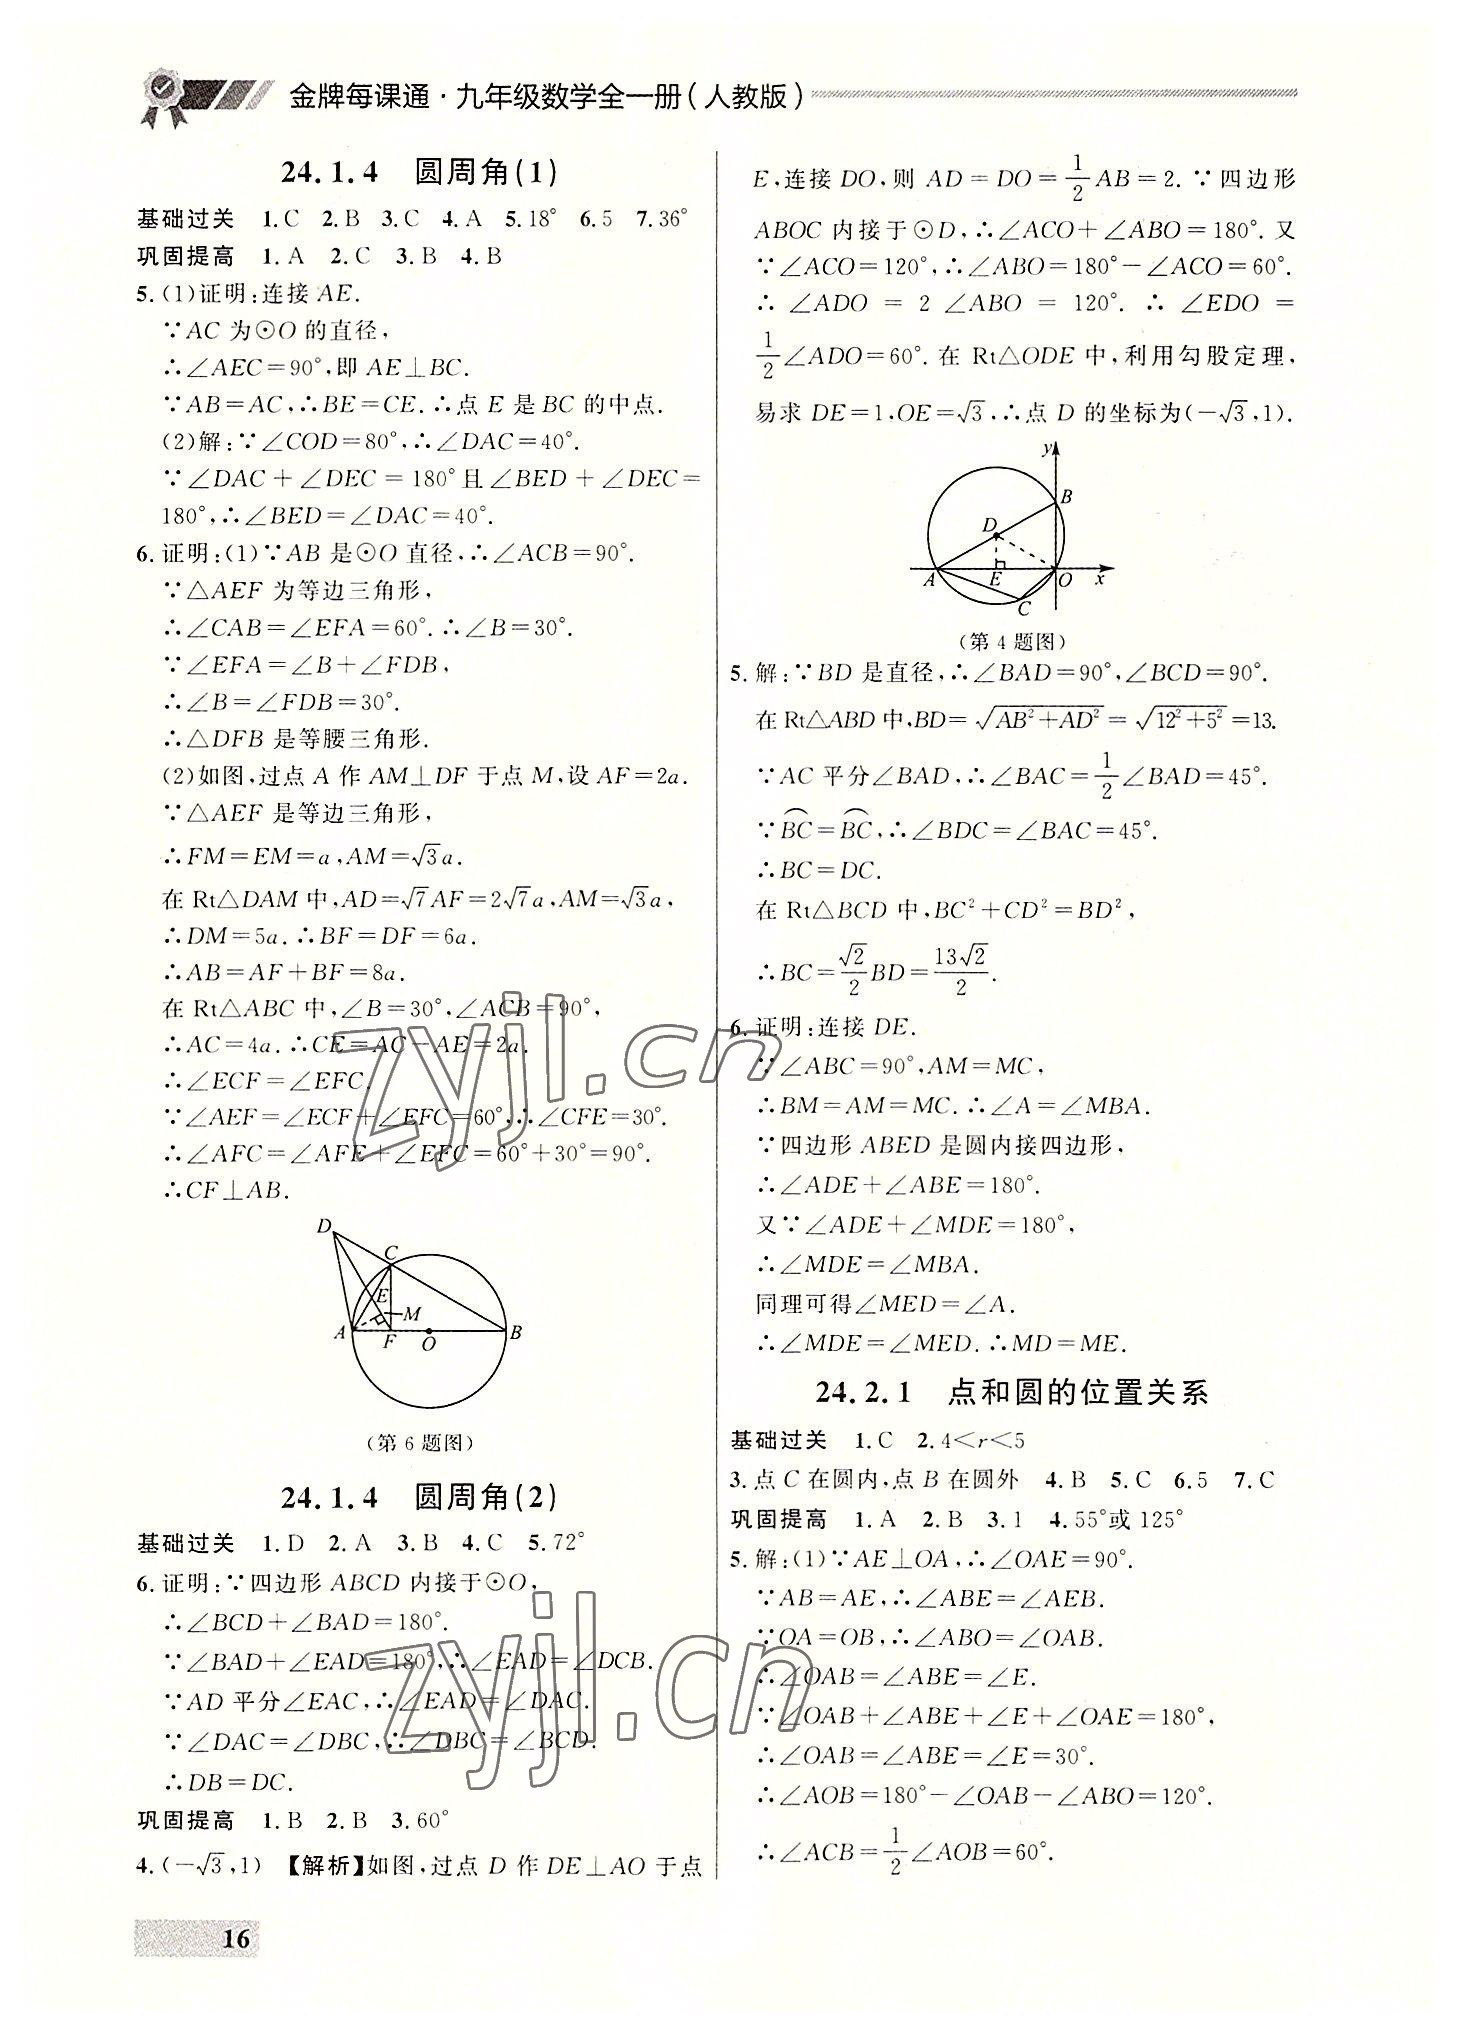 金牌每课通·九年级数学全一册(人教版)
24.1.4 圆周角(1)
基础过关 1.C 2.B 3.C 4.A 5.18° 6.5 7.36°
巩固提高 1.A 2.C 3.B 4.B
5.(1)证明:连接 AE.
∵AC 为⊙O 的直径,
∴∠AEC=90°,即 AE⊥BC.
∵AB=AC,∴BE=CE.∴点 E 是 BC 的中点.
(2)解:∵∠COD=80°,∴∠DAC=40°.
∵∠DAC+∠DEC=180°且∠BED+∠DEC=
180°,∴∠BED=∠DAC=40°.
6.证明:(1)∵AB 是⊙O 直径,∴∠ACB=90°.
∵△AEF 为等边三角形,
∴∠CAB=∠EFA=60°.∴∠B=30°.
∵∠EFA=∠B+∠FDB,
∴∠B=∠FDB=30°.
∴△DFB 是等腰三角形.
(2)如图,过点 A 作 AM⊥DF 于点 M,设 AF=2a.
∵△AEF 是等边三角形,
∴FM=EM=a,AM=√3a.
在 Rt△DAM 中,AD=√7AF=2√7a,AM=√3a,
∴DM=5a.∴BF=DF=6a.
∴AB=AF+BF=8a.
在 Rt△ABC 中,∠B=30°,∠ACB=90°,
∴AC=4a.∴CE=AC-AE=2a.
∴∠ECF=∠EFC.
∵∠AEF=∠ECF+∠EFC=60°,∴∠CFE=30°.
∴∠AFC=∠AFE+∠EFC=60°+30°=90°.
∴CF⊥AB.
D
C
E
M
A F O B
(第 6 题图)
24.1.4 圆周角(2)
基础过关 1.D 2.A 3.B 4.C 5.72°
6.证明:∵四边形 ABCD 内接于⊙O,
∴∠BCD+∠BAD=180°.
∵∠BAD+∠EAD=180°,∴∠EAD=∠DCB.
∵AD 平分∠EAC,∴∠EAD=∠DAC.
∵∠DAC=∠DBC,∴∠DBC=∠BCD.
∴DB=DC.
巩固提高 1.B 2.B 3.60°
4.(-√3,1) 【解析】如图,过点 D 作 DE⊥AO 于点
E,连接 DO,则 AD=DO=1/2AB=2.∵四边形
ABOC 内接于⊙D,∴∠ACO+∠ABO=180°.又
∵∠ACO=120°,∴∠ABO=180°-∠ACO=60°.
∴∠ADO=2∠ABO=120°.∴∠EDO=
1/2∠ADO=60°.在 Rt△ODE 中,利用勾股定理,
易求 DE=1,OE=√3,∴点 D 的坐标为(-√3,1).
y
B
D
A E O x
C
(第 4 题图)
5.解:∵BD 是直径,∴∠BAD=90°,∠BCD=90°.
在 Rt△ABD 中,BD=√(AB²+AD²)=√(12²+5²)=13.
∵AC 平分∠BAD,∴∠BAC=1/2∠BAD=45°.
∵⌒BC=⌒BC,∴∠BDC=∠BAC=45°.
∴BC=DC.
在 Rt△BCD 中,BC²+CD²=BD²,
∴BC=√2/2BD=13√2/2.
6.证明:连接 DE.
∵∠ABC=90°,AM=MC,
∴BM=AM=MC.∴∠A=∠MBA.
∵四边形 ABED 是圆内接四边形,
∴∠ADE+∠ABE=180°.
又∵∠ADE+∠MDE=180°,
∴∠MDE=∠MBA.
同理可得∠MED=∠A.
∴∠MDE=∠MED.∴MD=ME.
24.2.1 点和圆的位置关系
基础过关 1.C 2.4<r<5
3.点 C 在圆内,点 B 在圆外 4.B 5.C 6.5 7.C
巩固提高 1.A 2.B 3.1 4.55°或 125°
5.解:(1)∵AE⊥OA,∴∠OAE=90°.
∵AB=AE,∴∠ABE=∠AEB.
∵OA=OB,∴∠ABO=∠OAB.
∴∠OAB=∠ABE=∠E.
∵∠OAB+∠ABE+∠E+∠OAE=180°,
∴∠OAB=∠ABE=∠E=30°.
∴∠AOB=180°-∠OAB-∠ABO=120°.
∴∠ACB=1/2∠AOB=60°.
16
zyjl.cn
zyjl.cn